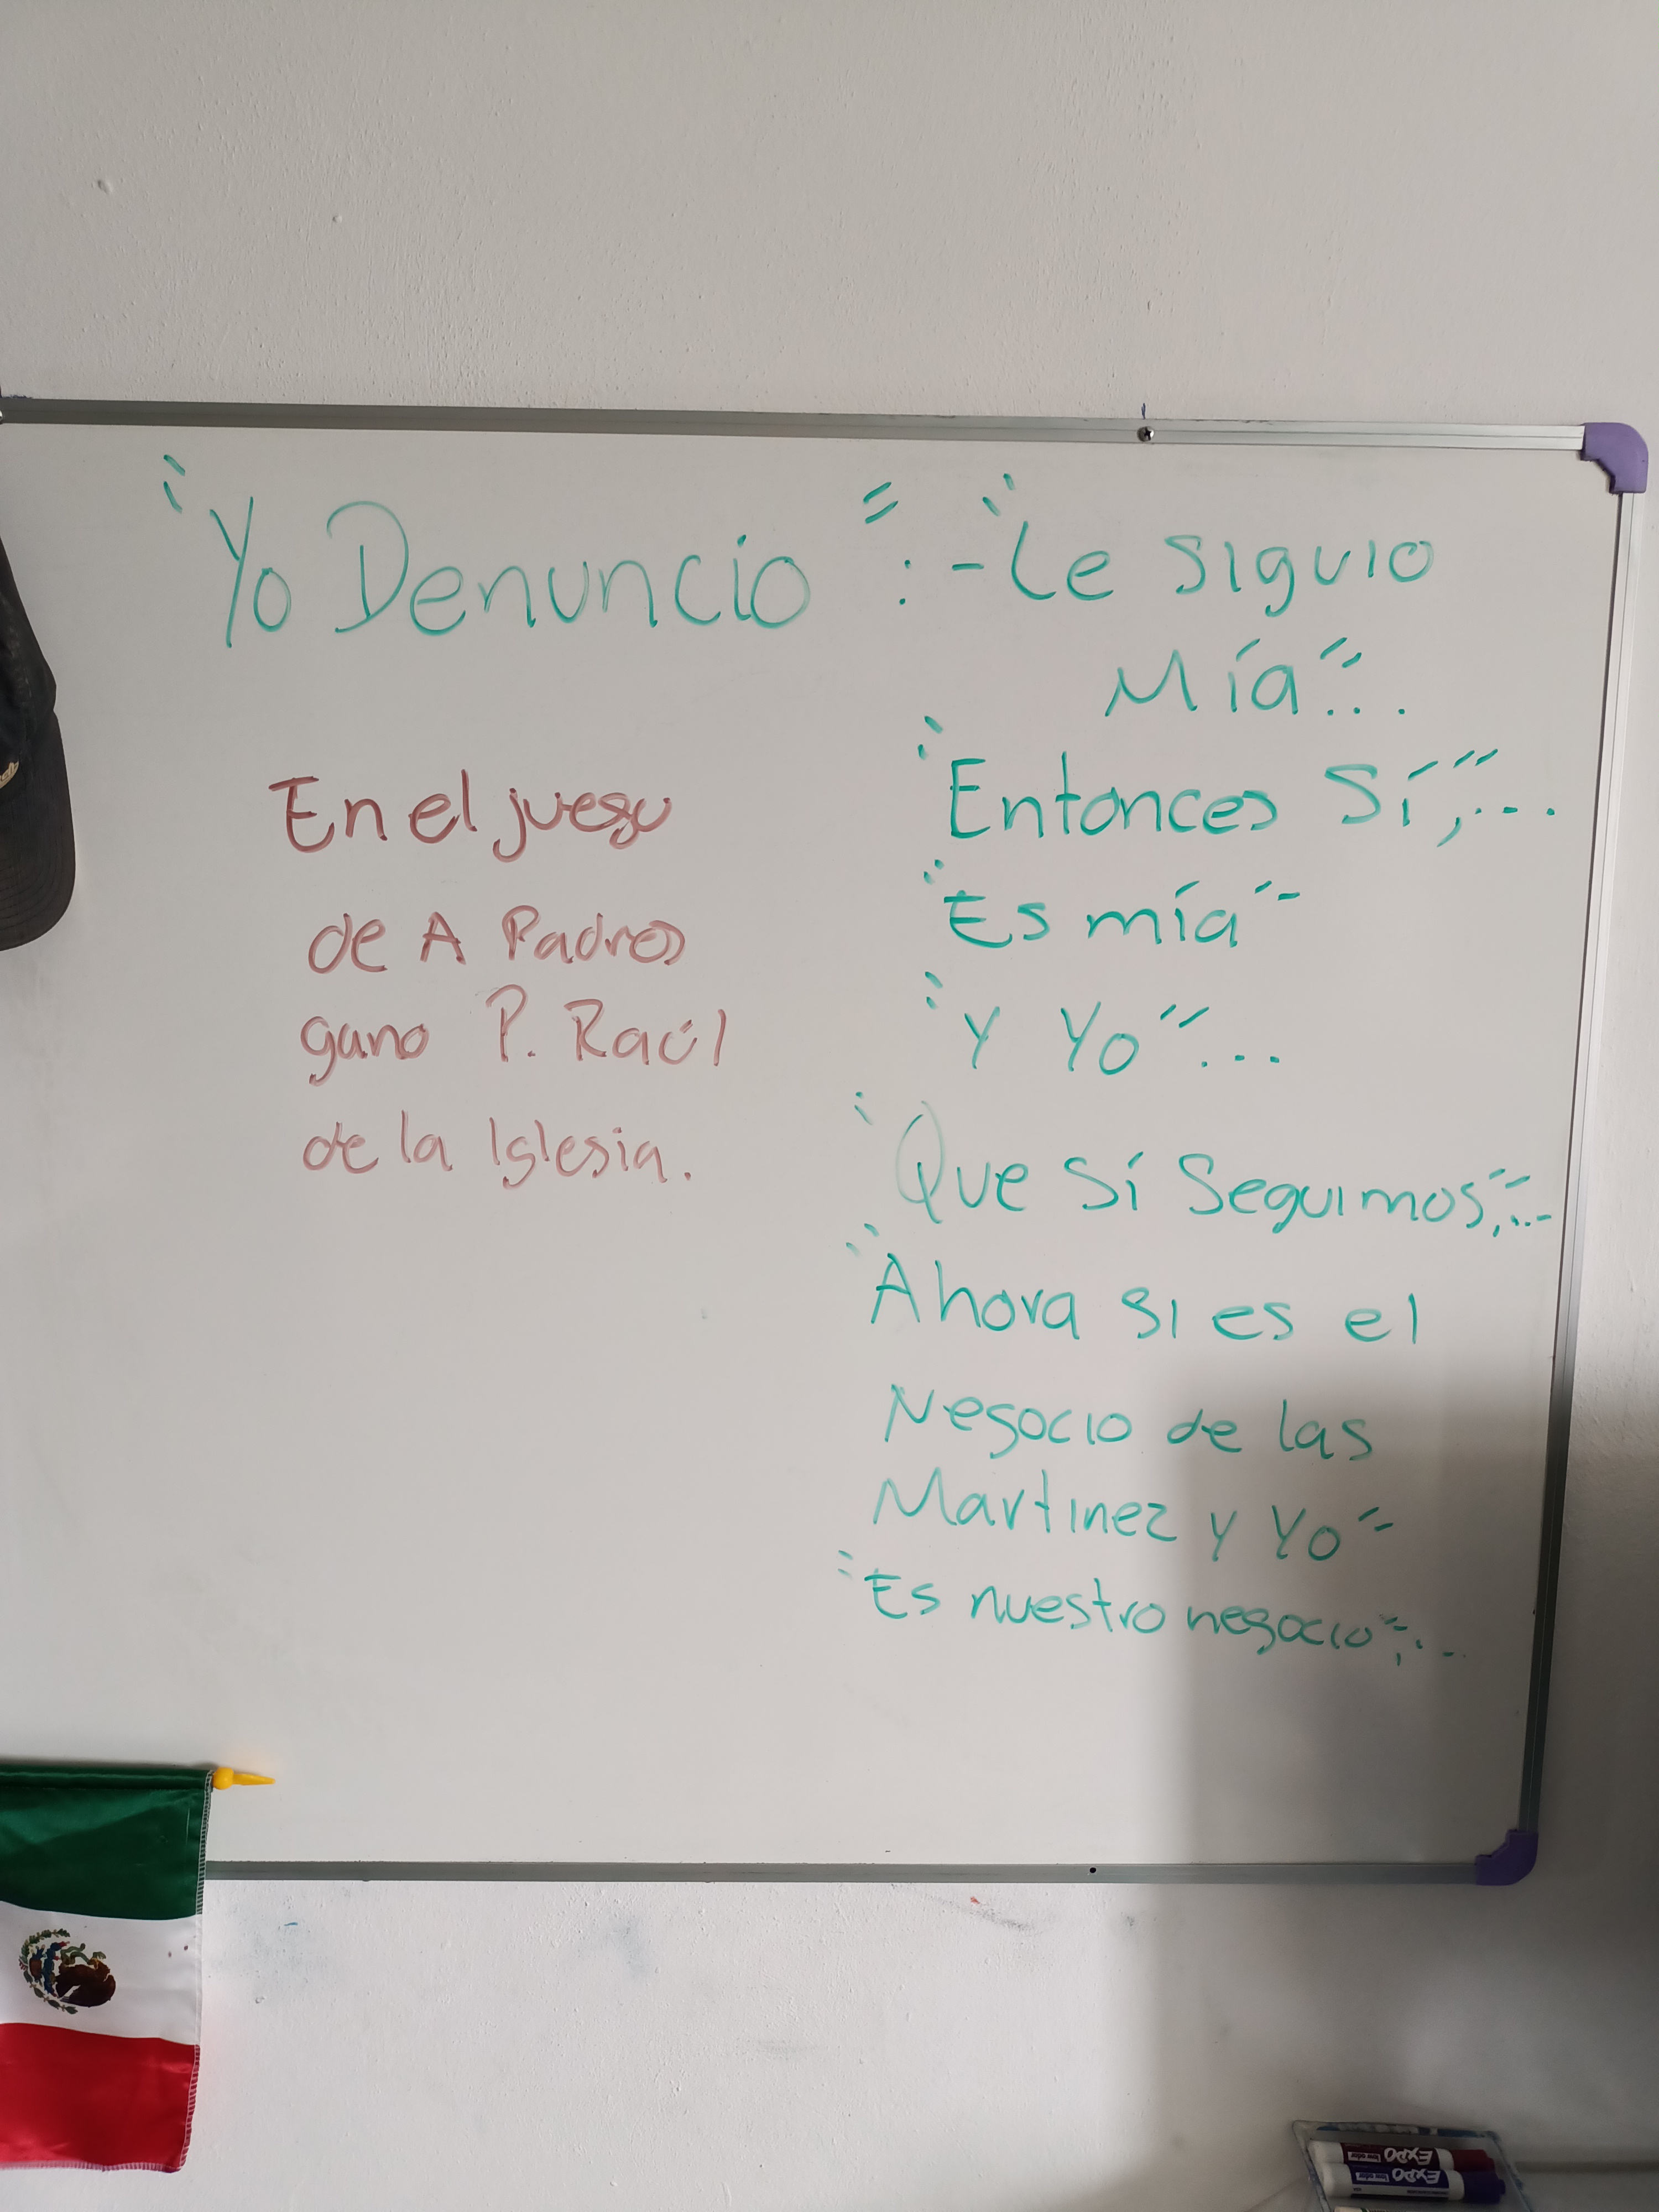 "Yo Denuncio":-"Le siguio
Mía"...
"Entonces Sí",...
"Es mía"
"Y Yo"...
"Que Sí Seguimos",...
"Ahora si es el
Negocio de las
Martinez y Yo"
"Es nuestro negocio",...
En el juego
de A Padres
gano P. Raúl
de la Iglesia.
EXPO
EXPO